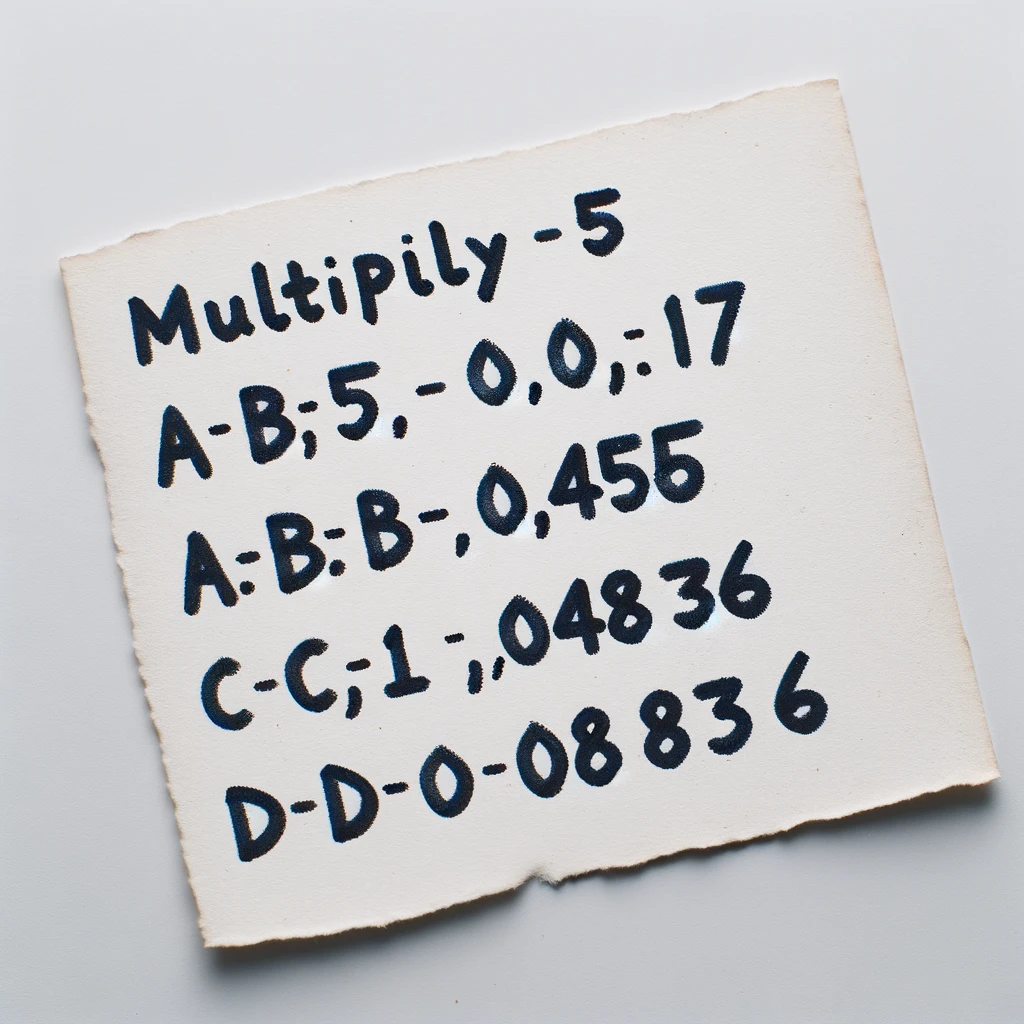 Multipily -5
A-B; 5,- 0,0,;:17
A:B:B-,0,455
C-C;-1 -;,04836
D-D-0-08836